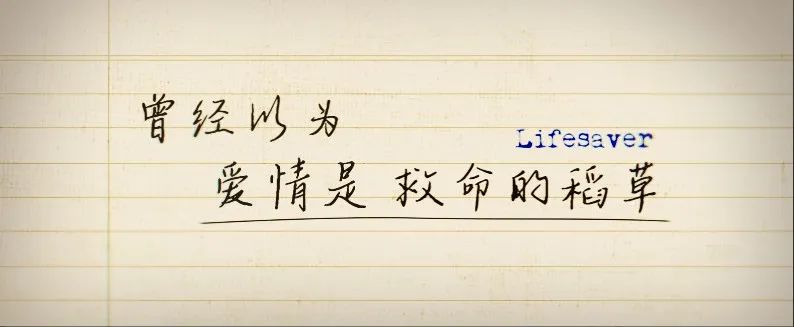 曾经以为
Lifesaver
爱情是救命的稻草